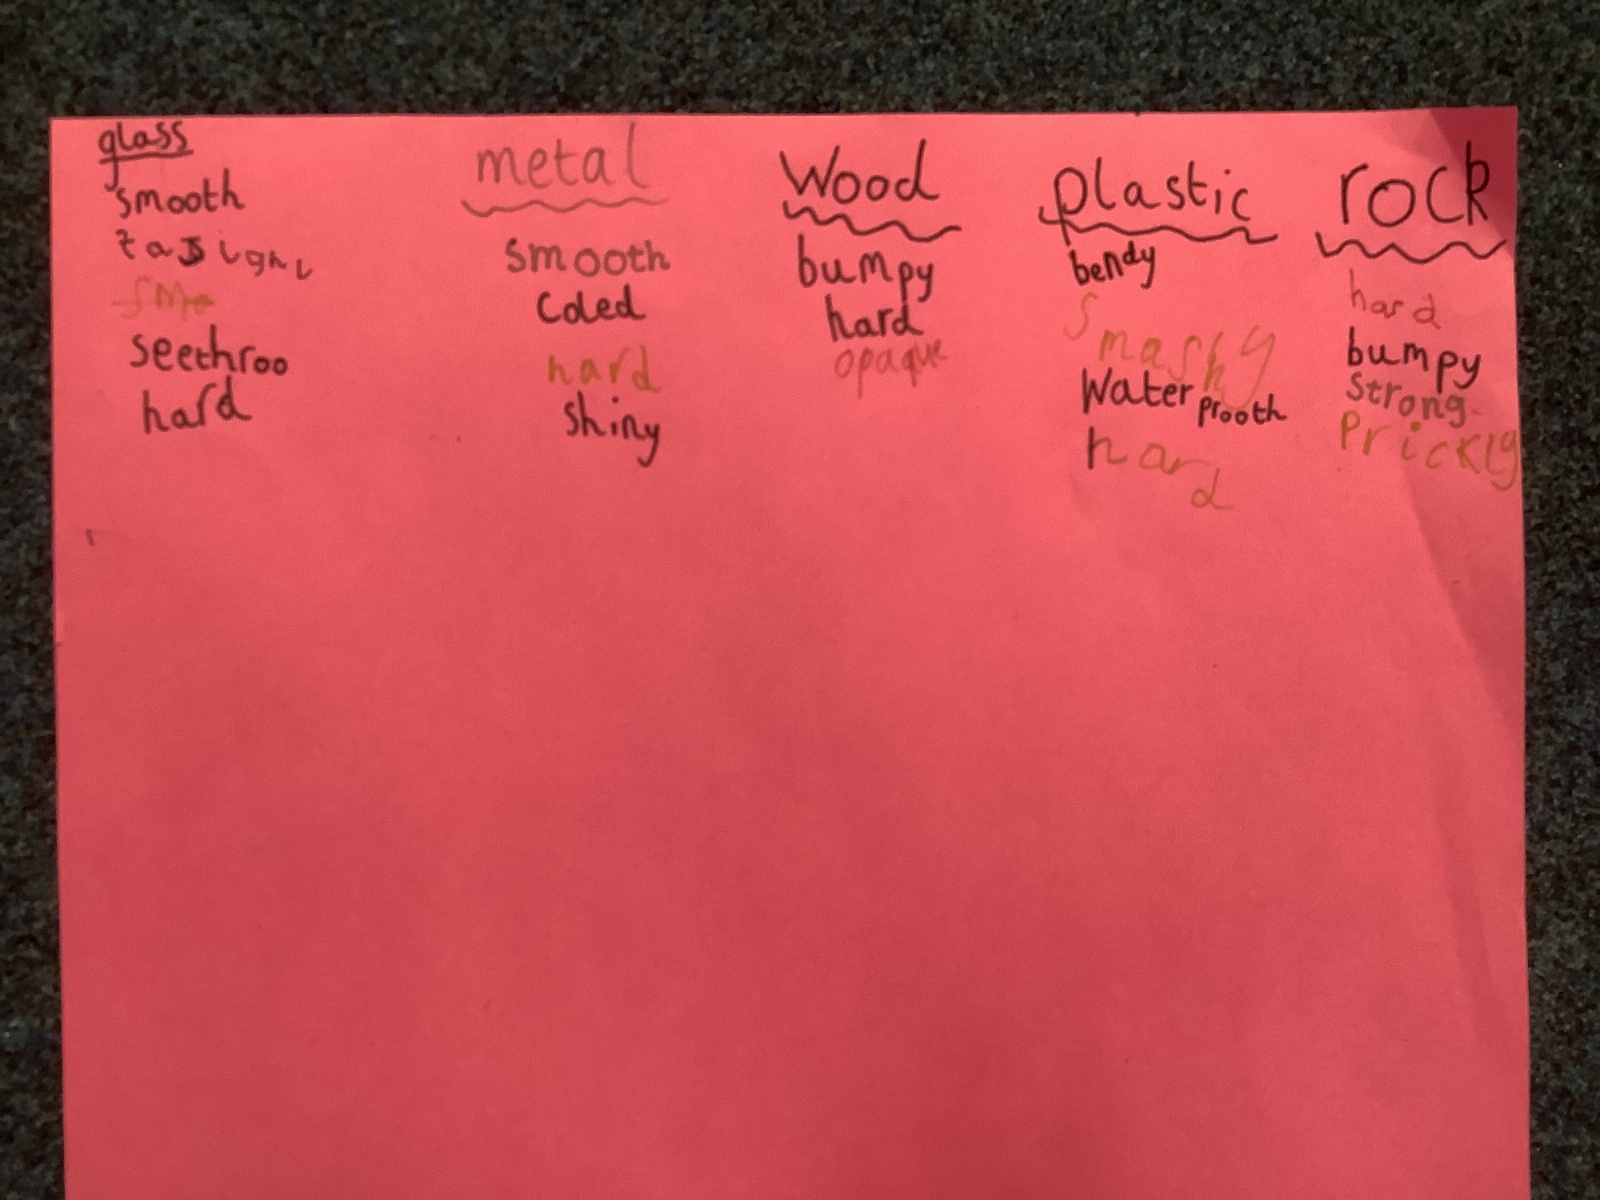 glass
smooth
seethroo
hard
metal
smooth
Coled
hard
Shiny
Wood
bumpy
hard
opaque
plastic
bendy
Smashy
Water prooth
hard
rock
hard
bumpy
Strong
Prickly